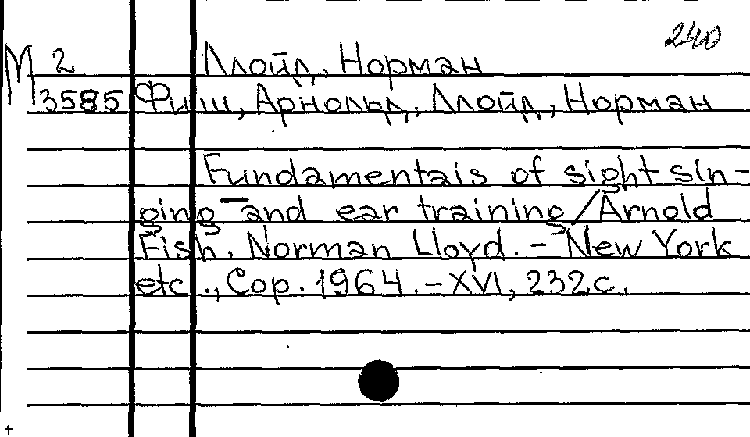 240
М 2 Ллойд, Норман
3585 Фиш, Арнольд, Ллойд, Норман
Fundamentals of sight sin-
ging and ear training/Arnold
Fish, Norman Lloyd. - New York
etc., Cop. 1964. - XVI, 232 с.